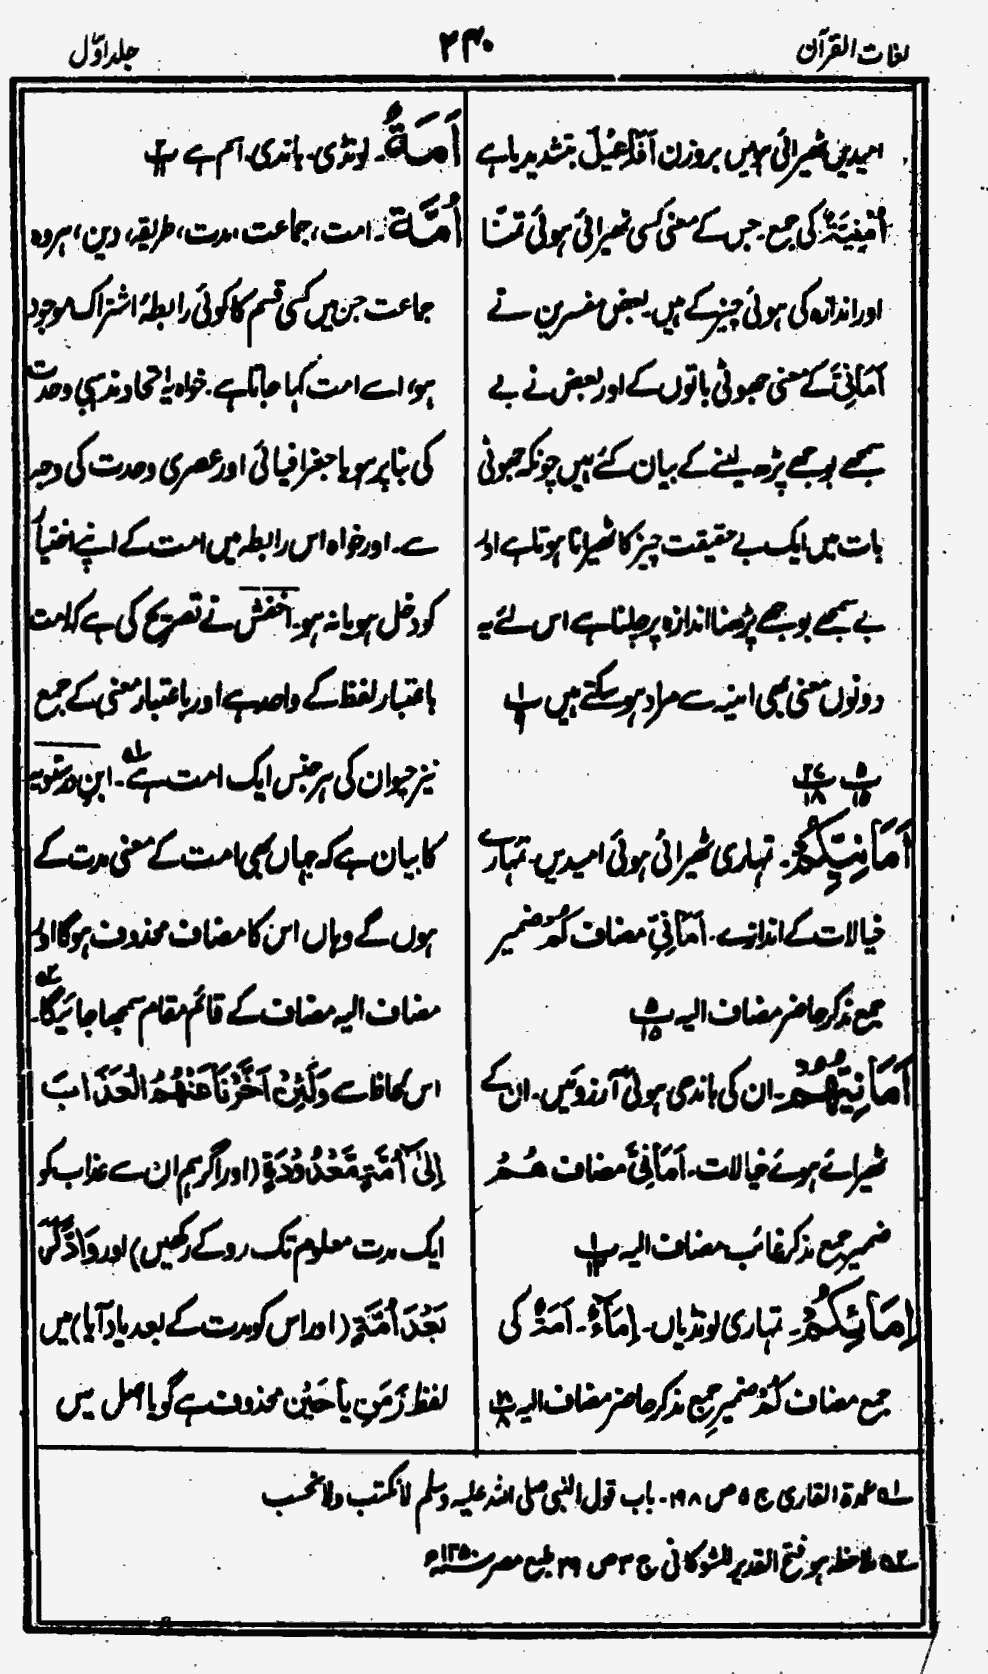 لغات القرآن
۲۴۰
جلد اوّل
امیدیں ٹھیرائی ہوئیں بروزن اَفَاعِیْلُ بتشدید یا ہے
اُمْنِیَۃٌ کی جمع۔ جس کے معنی کسی ٹھیرائی ہوئی تمنّا
اور اندازہ کی ہوئی چیز کے ہیں۔ بعض مفسرین نے
اَمَانِیَّ کے معنی جھوٹی باتوں کے اور بعض نے بے
سمجھے بوجھے پڑھ لینے کے بیان کئے ہیں چونکہ جھوٹی
بات میں ایک بے حقیقت چیز کا ٹھیرانا ہوتا ہے اور
بے سمجھے بوجھے پڑھنا اندازہ پر چلنا ہے اس لئے یہ
دونوں معنی بھی امنیہ سے مراد ہو سکتے ہیں پ ۱/۹
پ ۵/۱۵ پ ۲۷/۱۸
اَمَانِیِّکُمْ۔ تمہاری ٹھیرائی ہوئی امیدیں۔ تمہارے
خیالات کے اندازے۔ اَمَانِیِّ مضاف کُمْ ضمیر
جمع مذکر حاضر مضاف الیہ پ ۵/۱۵
اَمَانِیُّھُمْ۔ ان کی باندھی ہوئی آرزوئیں۔ ان کے
ٹھیرائے ہوئے خیالات۔ اَمَانِیُّ مضاف ھُمْ
ضمیر جمع مذکر غائب مضاف الیہ پ ۱/۱۳
اِمَائِکُمْ۔ تمہاری لونڈیاں۔ اِمَاءٌ۔ اَمَۃٌ کی
جمع مضاف کُمْ ضمیر جمع مذکر حاضر مضاف الیہ پ ۱۸
اَمَۃٌ۔ لونڈی۔ باندی۔ اسم ہے پ ۲/۱۱
اُمَّۃٌ۔ امت، جماعت، مدت، طریقہ، دین، ہر وہ
جماعت جن میں کسی قسم کا کوئی رابطۂ اشتراک موجود
ہو، اسے امت کہا جاتا ہے۔ خواہ یہ اتحاد مذہبی وحدت
کی بنا پر ہو یا جغرافیائی اور عصری وحدت کی وجہ
سے۔ اور خواہ اس رابطہ میں امت کے اپنے اختیار
کو دخل ہو یا نہ ہو۔ اخفش نے تصریح کی ہے کہ امت
باعتبار لفظ کے واحد ہے اور باعتبار معنی کے جمع
نیز حیوان کی ہر جنس ایک امت ہے ۱ھ۔ ابن درستویہ
کا بیان ہے کہ جہاں بھی امت کے معنی مدت کے
ہوں گے وہاں اس کا مضاف محذوف ہوگا اور
مضاف الیہ مضاف کے قائم مقام سمجھا جائیگا۔ ۲ھ
اس لحاظ سے وَلَئِنْ اَخَّرْنَا عَنْھُمُ الْعَذَابَ
اِلٰی اُمَّۃٍ مَّعْدُوْدَۃٍ (اور اگر ہم ان سے عذاب کو
ایک مدت معلوم تک روکے رکھیں) اور وَادَّکَرَ
بَعْدَ اُمَّۃٍ (اور اس کو مدت کے بعد یاد آیا) میں
لفظ زَمَنِ یا حِیْنِ محذوف ہے گویا اصل میں
۱ھ عمدۃ القاری ج ۵ ص ۱۹۸۔ باب قول النبی صلی اللہ علیہ وسلم لا نکتب ولا نحسب
۲ھ ملاحظہ ہو فتح القدیر للشوکانی ج ۳ ص ۲۹ طبع مصر ۱۳۵۰ھ